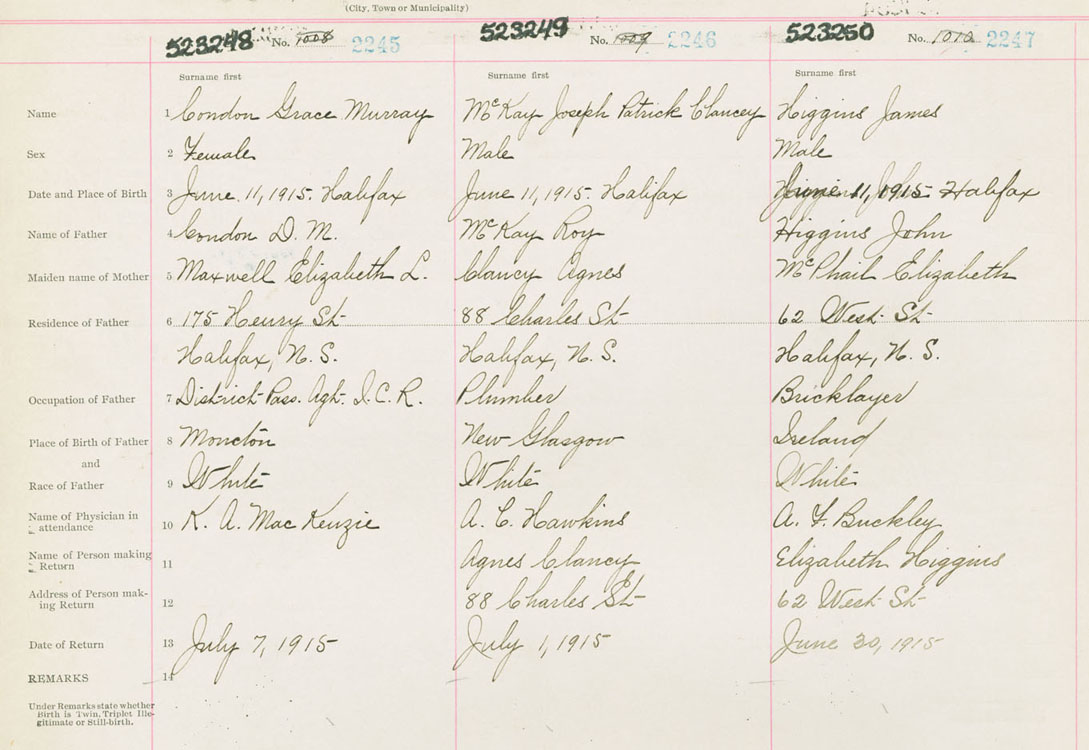 (City, Town or Municipality)
523248 No. 1008 2245 523249 No. 1009 2246 523250 No. 1010 2247
Surname first Surname first Surname first
Name 1 Condon Grace Murray McKay Joseph Patrick Clancey Higgins James
Sex 2 Female Male Male
Date and Place of Birth 3 June 11, 1915. Halifax June 11, 1915. Halifax June 11, 1915 Halifax
Name of Father 4 Condon D. M. McKay Roy Higgins John
Maiden name of Mother 5 Maxwell Elizabeth L. Clancy Agnes McPhail Elizabeth
Residence of Father 6 175 Henry St 88 Charles St 62 West St
Halifax, N. S. Halifax, N. S. Halifax, N. S.
Occupation of Father 7 District Pass. Agt. I. C. R. Plumber Bricklayer
Place of Birth of Father 8 Moncton New Glasgow Ireland
and
Race of Father 9 White White White
Name of Physician in attendance 10 K. A. MacKenzie A. C. Hawkins A. F. Buckley
Name of Person making Return 11 Agnes Clancy Elizabeth Higgins
Address of Person mak-
ing Return 12 88 Charles St 62 West St
Date of Return 13 July 7, 1915 July 1, 1915 June 30, 1915
REMARKS 14
Under Remarks state whether
Birth is Twin, Triplet Ille-
gitimate or Still-birth.